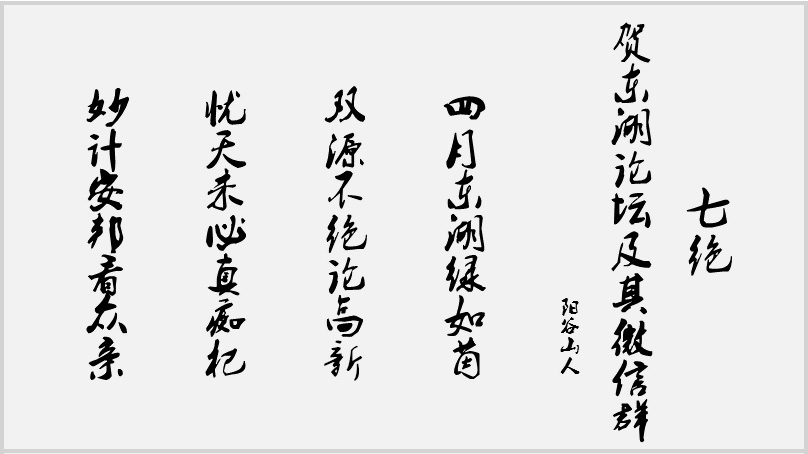 七绝
贺东湖论坛及其微信群
阳谷山人
四月东湖绿如茵
双源不绝论高新
忧天未必真痴杞
妙计安邦看众亲